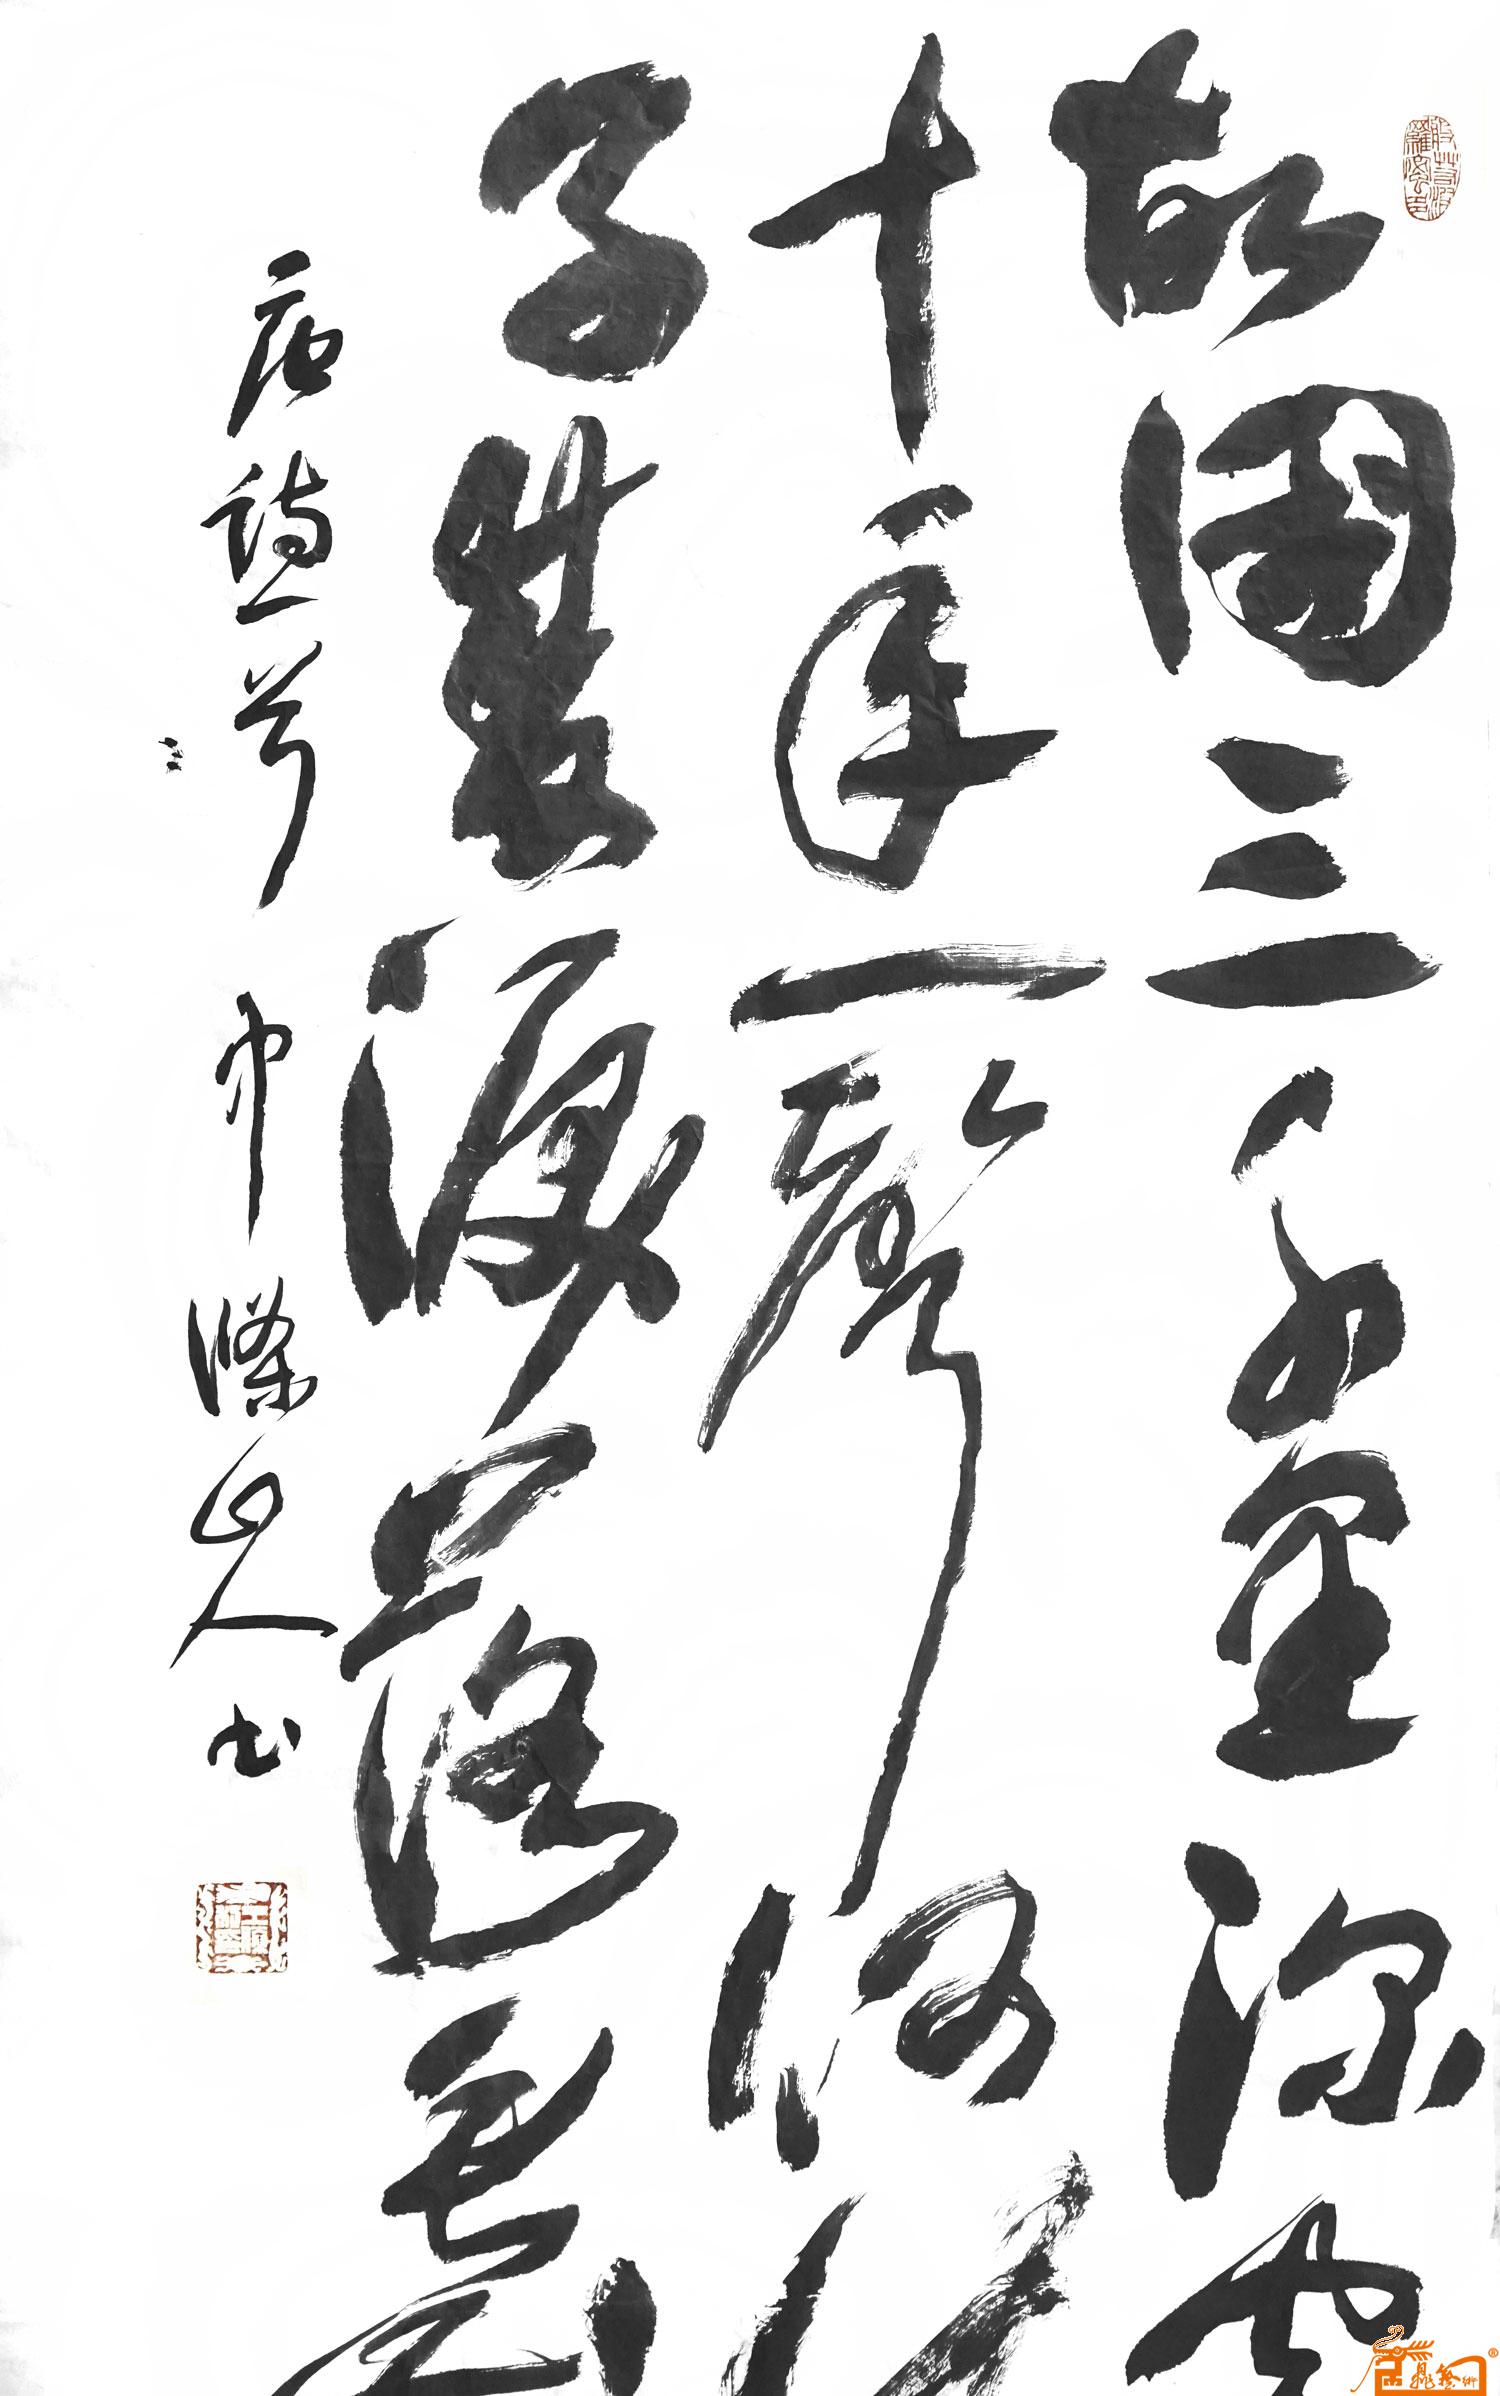 故國三千里深宮
十年一聲何滿
子雙淚落君前
唐詩一首 中條山人書